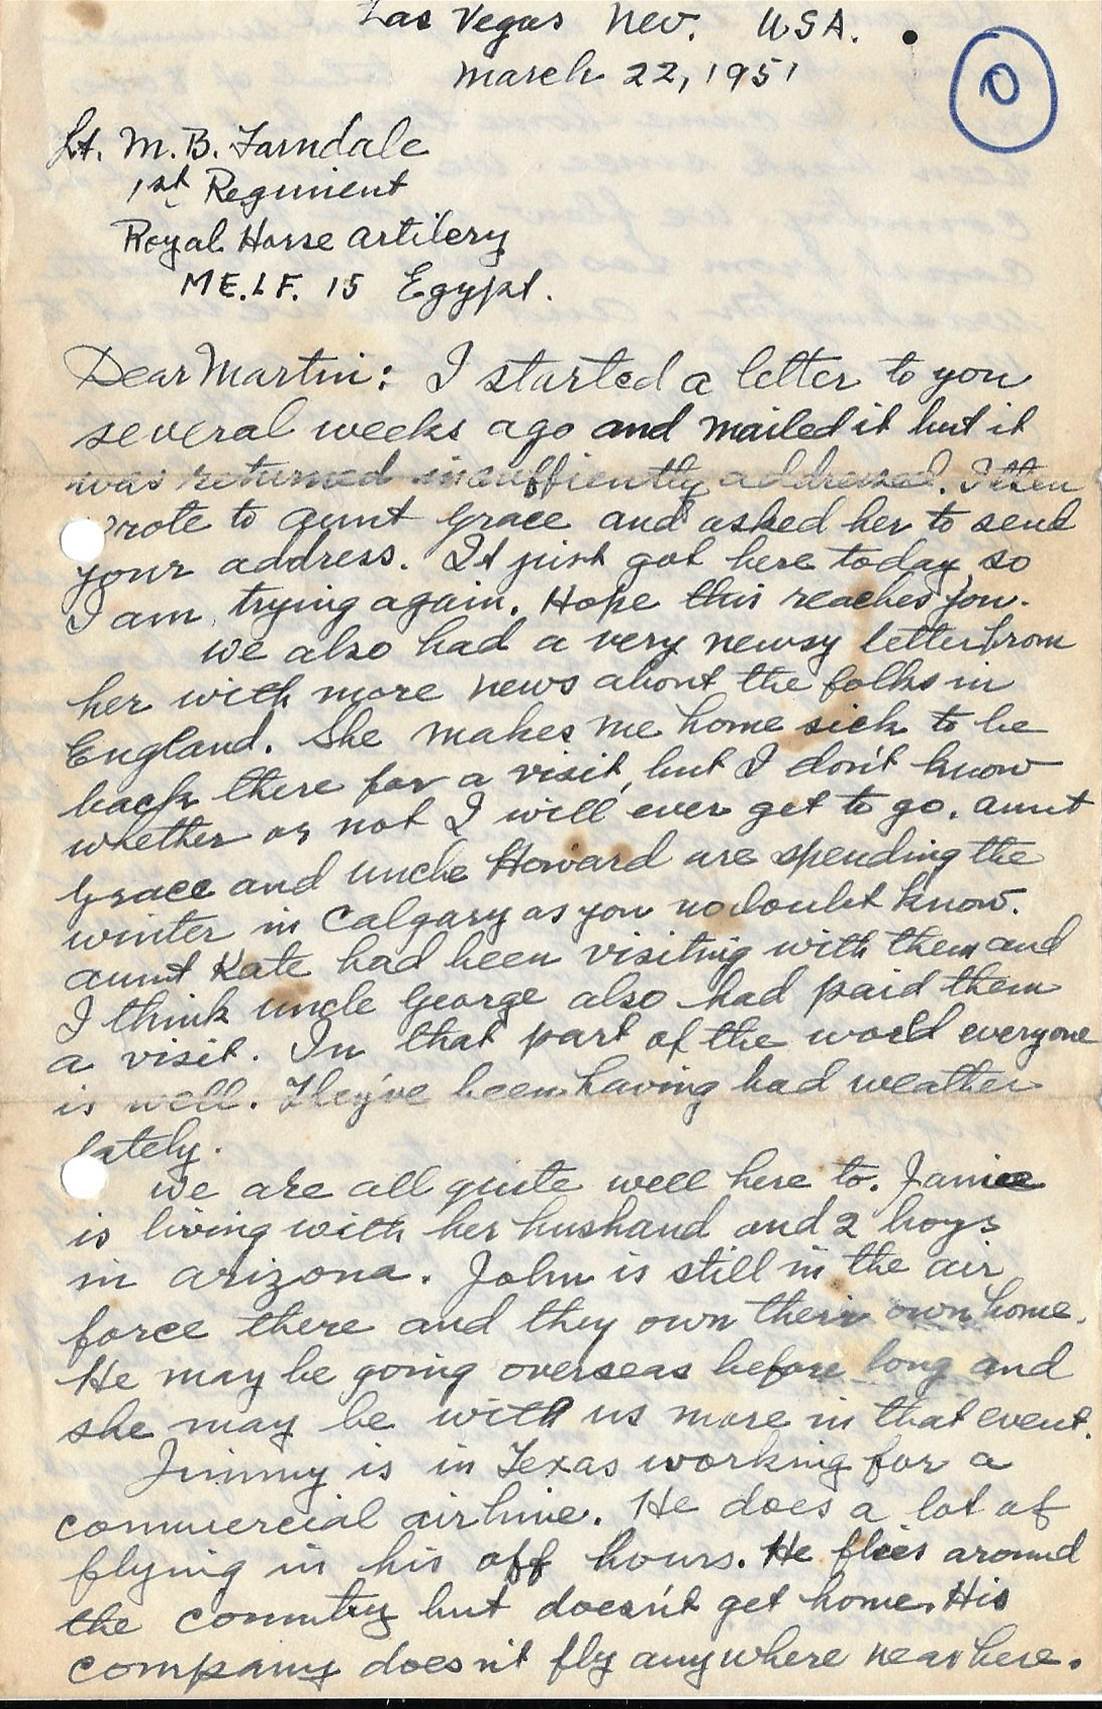 Las Vegas Nev. USA.
March 22, 1951
0
Lt. M. B. Farndale
1st Regiment
Royal Horse Artilery
M.E.L.F. 15 Egypt.
Dear Martin: I started a letter to you
several weeks ago and mailed it but it
was returned insufficiently addressed. I then
wrote to Aunt Grace and asked her to send
your address. It just got here today so
I am trying again. Hope this reaches you.
We also had a very newsy letter from
her with more news about the folks in
England. She makes me home sick to be
back there for a visit, but I don't know
whether or not I will ever get to go. Aunt
Grace and Uncle Howard are spending the
winter in Calgary as you no doubt know.
Aunt Kate had been visiting with them and
I think Uncle George also had paid them
a visit. In that part of the world everyone
is well. They've been having bad weather
lately.
We are all quite well here to. Janice
is living with her husband and 2 boys
in Arizona. John is still in the air
force there and they own their own home.
He may be going overseas before long and
she may be with us more in that event.
Jimmy is in Texas working for a
commercial airline. He does a lot of
flying in his off hours. He flies around
the country but doesn't get home. His
company doesn't fly anywhere near here.